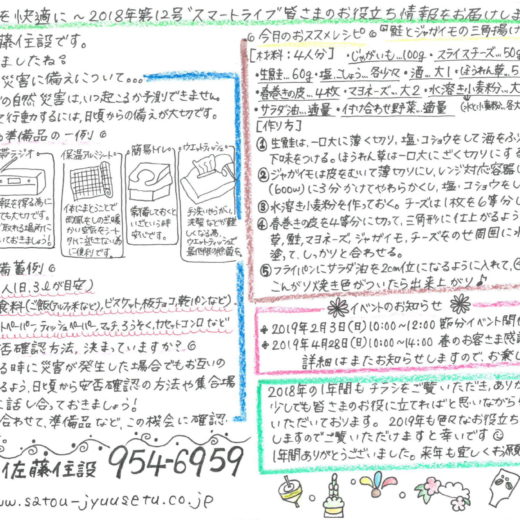 も快適に～2018年第12号"スマートライフ"皆さまのお役立ち情報をお届けしま
藤住設です。
ましたね?
災害に備えについて…
の自然災害は、いつ起こるか予測できません。
て行動するには、日頃からの備えが大切です。
準備品の一例
帯ラジオ
保温アルミシート
簡易トイレ
ウエットティッシュ
備蓄例
人(1日、3Lが目安)
食料(ご飯(アルファ米など)、ビスケット、板チョコ、乾パンなど)
ットペーパー、ティッシュペーパー、マッチ、ろうそく、カセットコンロなど
否確認方法、決まっていますか?
る時に災害が発生した場合でもお互いの
るよう、日頃から安否確認の方法や集合場
に話し合っておきましょう!
合わせて、準備品など、この機会に確認、
佐藤住設 954-6959
www.satou-jyuusetu.co.jp
今月のおススメレシピ 『鮭とジャガイモの三角揚げ
[材料:4人分] ・じゃがいも…100g ・スライスチーズ…50g
・生鮭…60g ・塩こしょう…各少々 ・酒…大1 ・ほうれん草…5
・春巻きの皮…4枚 ・マヨネーズ…大2 ・水溶き小麦粉…大
・サラダ油…適量 ・付け合わせ野菜…適量
[作り方]
① 生鮭は、一口大に薄く切り、塩・コショウをして酒をふ
下味をつける。ほうれん草は一口大にざく切りにする
② ジャガイモは皮をむいて薄切りにし、レンジ対応容器に
(600w)に3分かけてやわらかくし、塩・コショウをし
③ 水溶き小麦粉を作っておく。チーズは1枚を6等分し
④ 春巻きの皮を4等分に切って、三角形に仕上がるよう
草、鮭、マヨネーズ、ジャガイモ、チーズをのせ周囲に水
塗って、しっかりと合わせる。
⑤ フライパンにサラダ油を2cm位になるように入れて、
こんがり焼き色がついたら出来上がり♪
イベントのお知らせ
* 2019年2月3日(日)10:00~12:00 節分イベント開
* 2019年4月28日(日)10:00~14:00 春のお客さま感
詳細はまたお知らせしますので、お楽し
2018年の1年間もチラシをご覧いただき、あり
少しでも皆さまのお役に立てればと思いながら
いただいております。2019年も色々なお役立ち
しますのでご覧いただけますと幸いです☺
1年間ありがとうございました。来年も宜しくお願